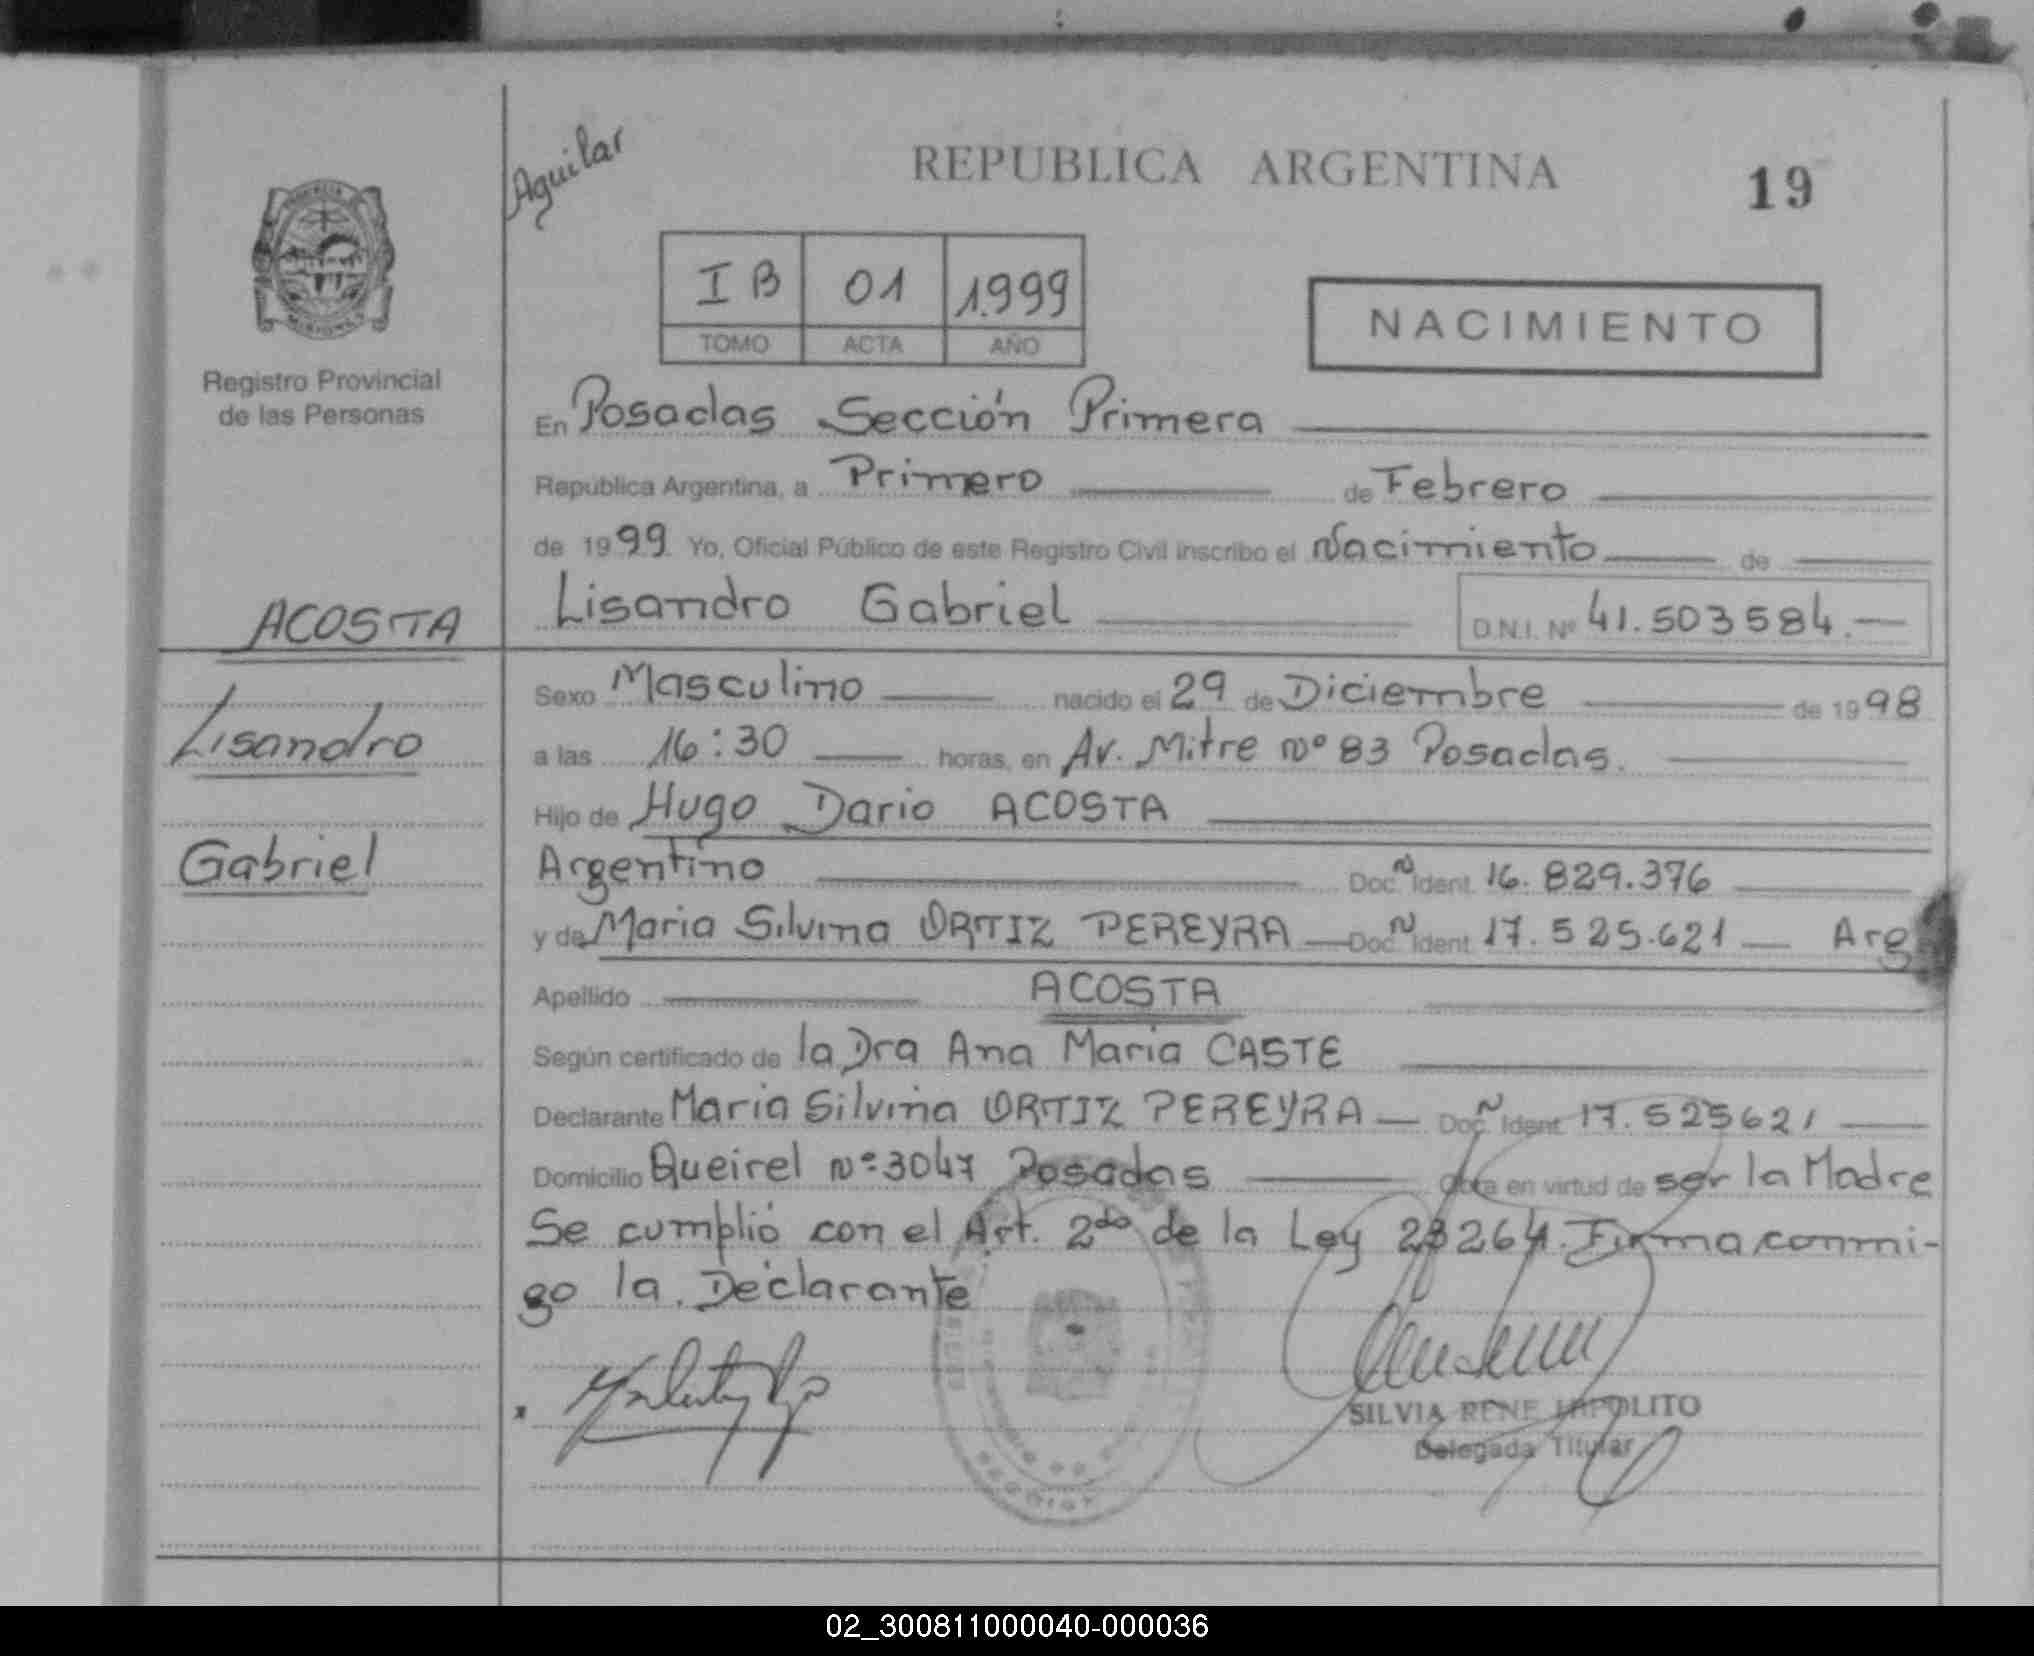 Aguilar
REPUBLICA ARGENTINA
19
I B 01 1.999
TOMO ACTA AÑO
NACIMIENTO
MISIONES
Registro Provincial
de las Personas
En Posadas Sección Primera
República Argentina, a Primero de Febrero
de 1999 Yo, Oficial Público de este Registro Civil inscribo el Nacimiento de
ACOSTA
Lisandro Gabriel D.N.I. Nº 41.503584.-
Sexo Masculino nacido el 29 de Diciembre de 1998
Lisandro
a las 16:30 horas, en Av. Mitre Nº 83 Posadas.
Hijo de Hugo Dario ACOSTA
Gabriel
Argentino Doc. N Ident. 16.829.376
y de Maria Silvina ORTIZ PEREYRA Doc. N Ident. 17.525.621 Arg
Apellido ACOSTA
Según certificado de la Dra Ana Maria CASTE
Declarante Maria Silvina ORTIZ PEREYRA Doc. N Ident. 17.525621
Domicilio Queirel Nº 3047 Posadas Obra en virtud de ser la Madre
Se cumplió con el Art. 2do de la Ley 23264. Firma conmi-
go la Declarante
SILVIA RENE HIPOLITO
Delegada Titular
02_300811000040-000036